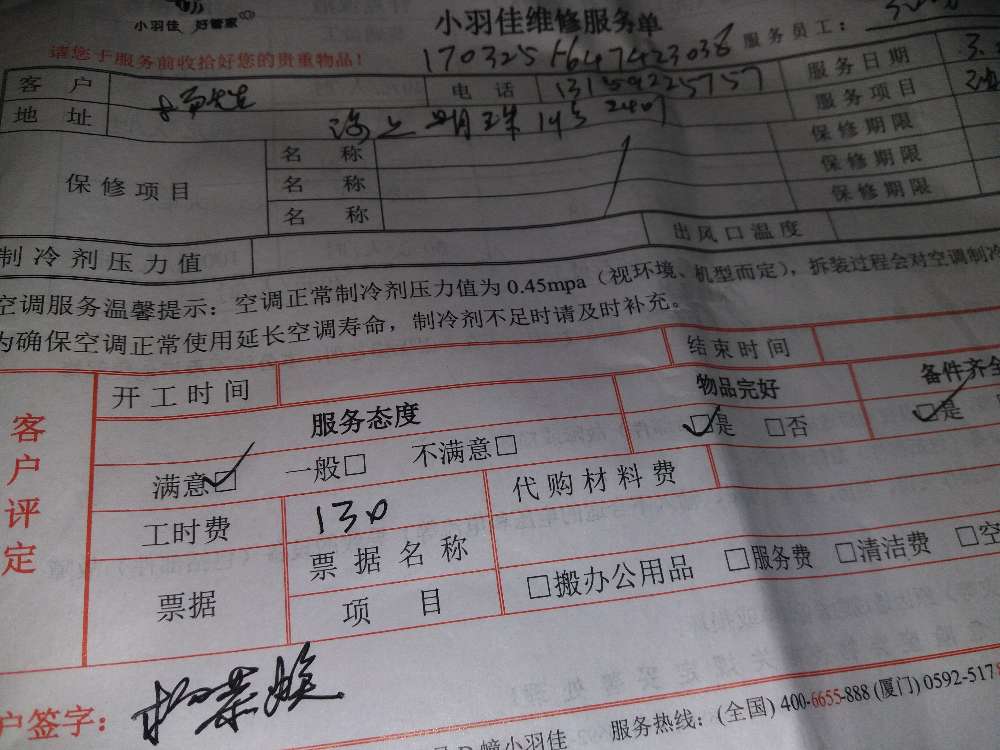 小羽佳 好管家
小羽佳维修服务单
请您于服务前收拾好您的贵重物品！
服务员工：
客户 电话 13159225757 服务日期
地址 海上明珠 服务项目
保修项目 名称 保修期限
名称 保修期限
名称 保修期限
制冷剂压力值 出风口温度
空调服务温馨提示：空调正常制冷剂压力值为0.45mpa（视环境、机型而定），拆装过程会对空调制冷
为确保空调正常使用延长空调寿命，制冷剂不足时请及时补充。
客户评定
开工时间 结束时间
服务态度 物品完好 备件齐全
满意☑ 一般□ 不满意□ ☑是 □否 ☑是
工时费 130 代购材料费
票据 票据名称 □搬办公用品 □服务费 □清洁费 □空
项目
户签字：
幢小羽佳 服务热线：(全国) 400-6655-888 (厦门) 0592-517